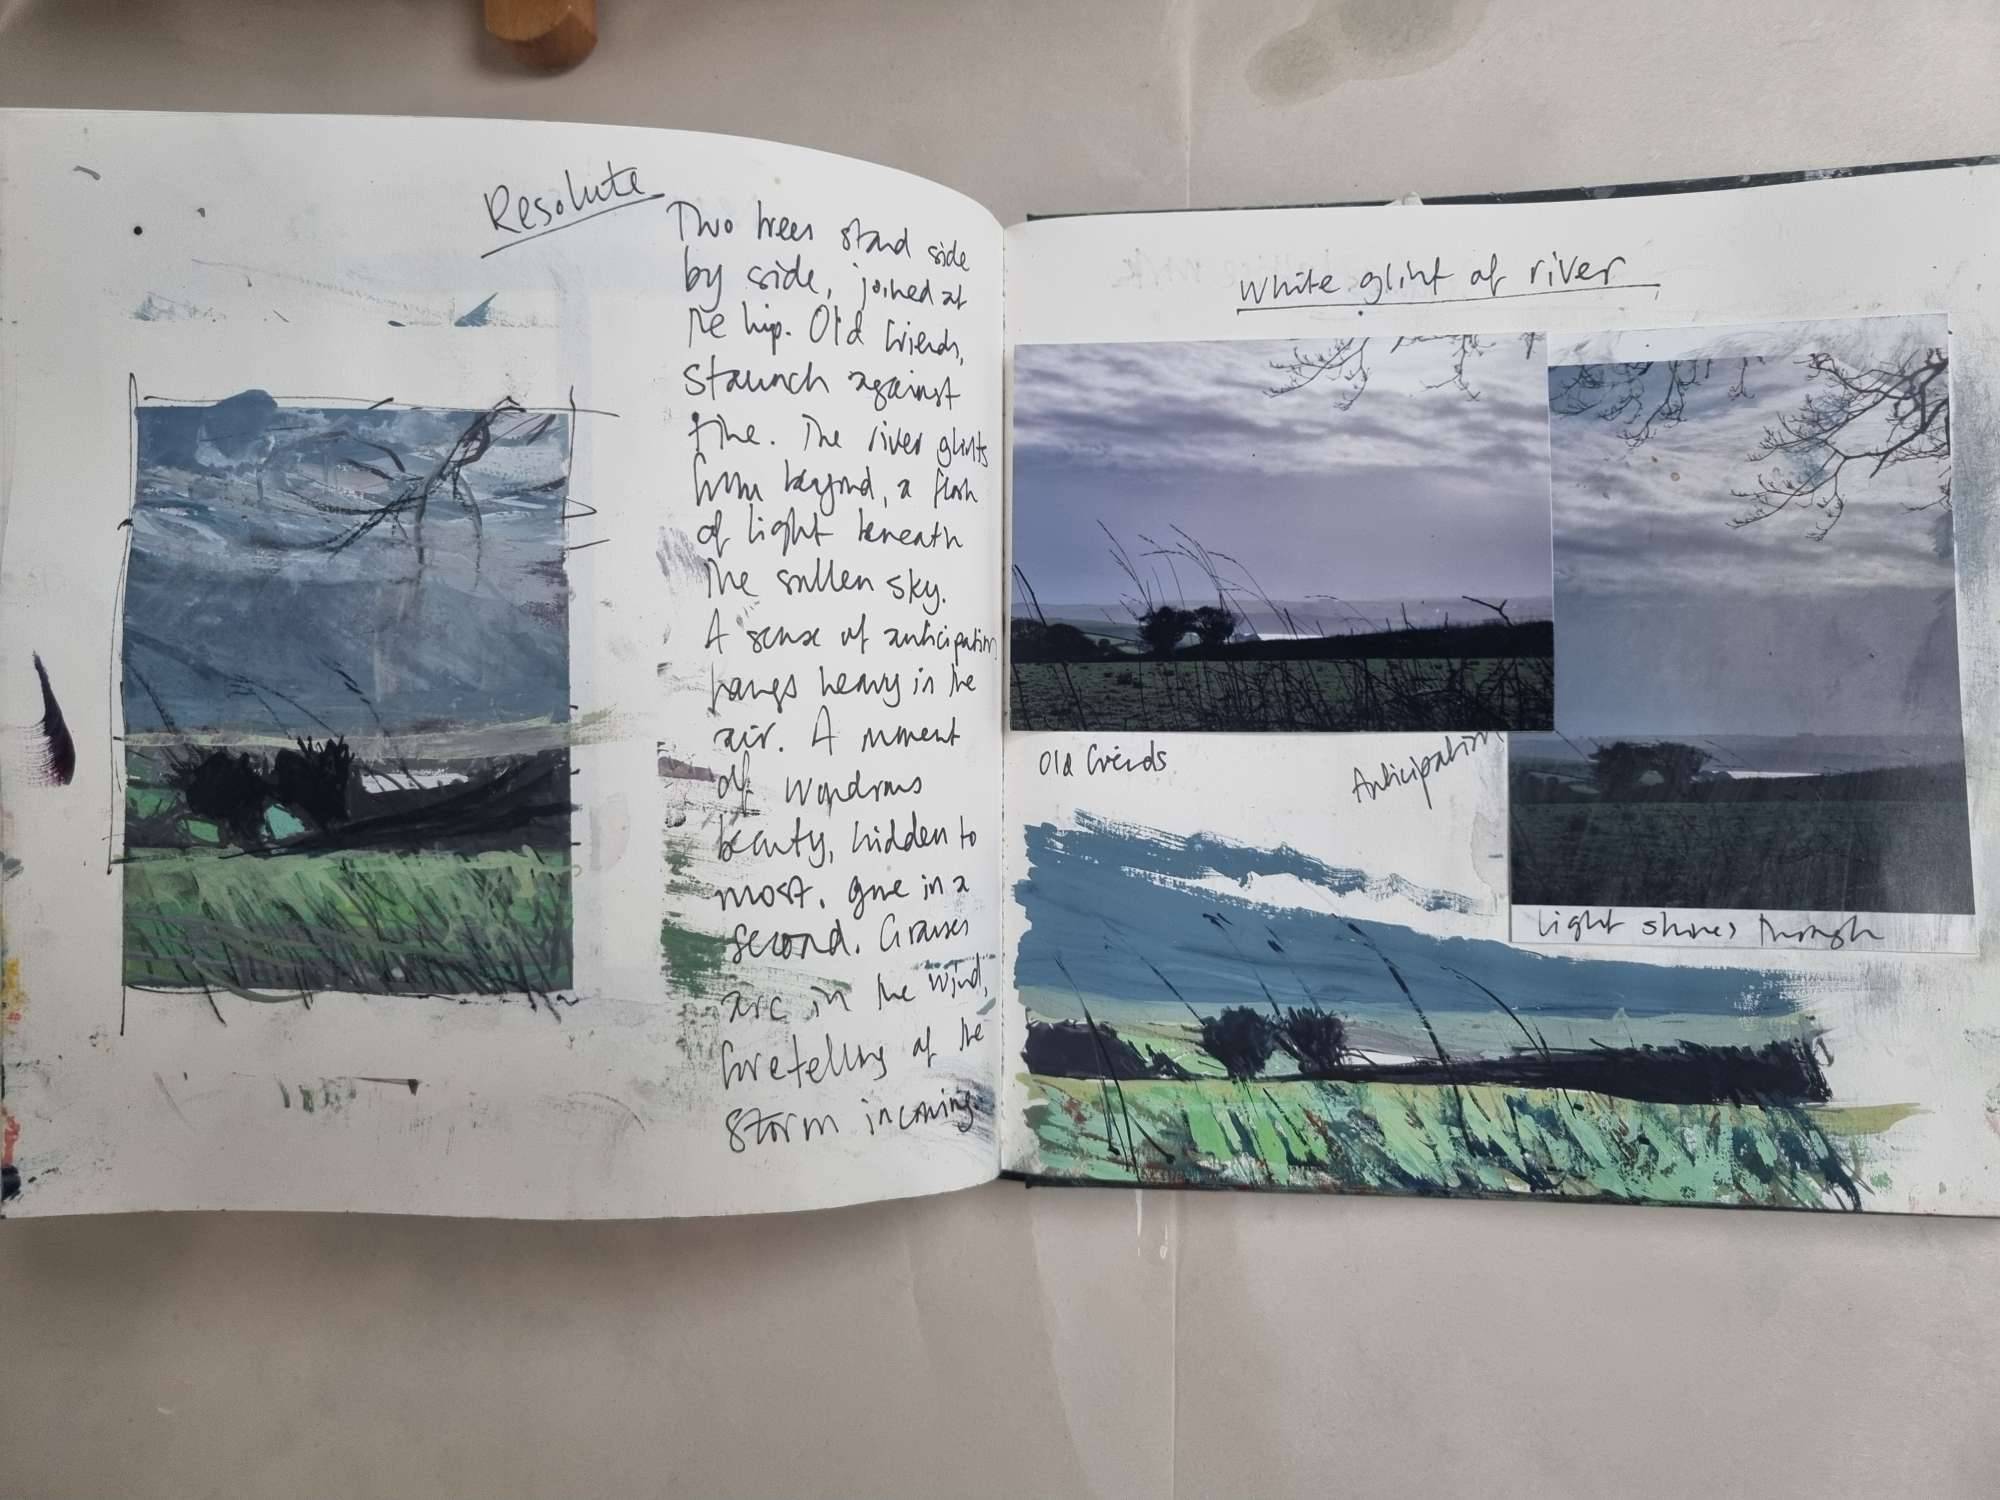 Resolute
Two trees stand side
by side, joined at
the hip. Old friends,
staunch against
time. The river glints
from beyond, a flash
of light beneath
the sullen sky.
A sense of anticipation
hangs heavy in the
air. A moment
of wondrous
beauty, hidden to
most. gone in a
second. Grasses
arc in the wind,
foretelling of the
storm incoming.
White glint of river
Old friends
Anticipation
light shines through